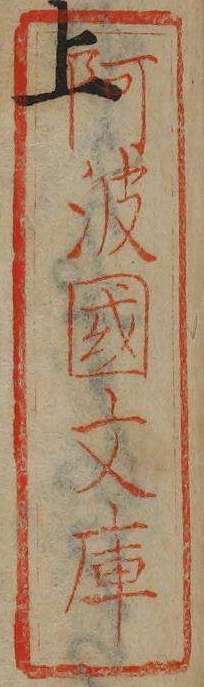 上
阿波國文庫